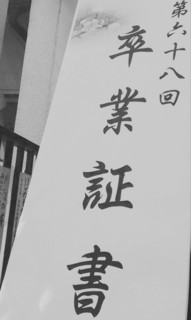 第六十八回
卒業証書